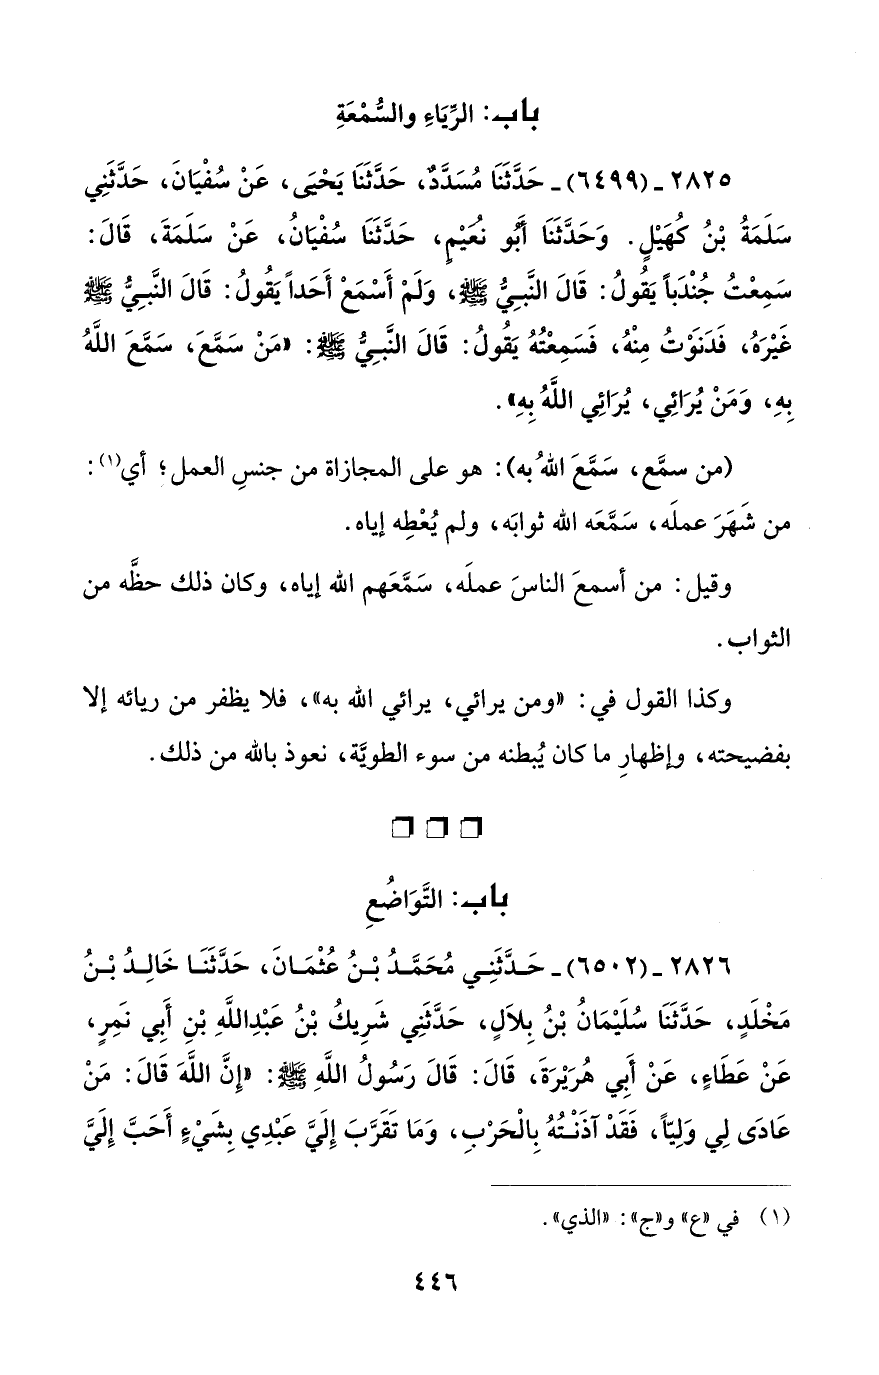 باب: الرِّيَاءِ والسُّمْعَةِ
٢٨٢٥ ـ (٦٤٩٩) ـ حَدَّثَنَا مُسَدَّدٌ، حَدَّثَنَا يَحْيَى، عَنْ سُفْيَانَ، حَدَّثَنِي
سَلَمَةُ بْنُ كُهَيْلٍ. وَحَدَّثَنَا أَبُو نُعَيْمٍ، حَدَّثَنَا سُفْيَانُ، عَنْ سَلَمَةَ، قَالَ:
سَمِعْتُ جُنْدَباً يَقُولُ: قَالَ النَّبِيُّ ﷺ، وَلَمْ أَسْمَعْ أَحَداً يَقُولُ: قَالَ النَّبِيُّ ﷺ
غَيْرَهُ، فَدَنَوْتُ مِنْهُ، فَسَمِعْتُهُ يَقُولُ: قَالَ النَّبِيُّ ﷺ: «مَنْ سَمَّعَ، سَمَّعَ اللَّهُ
بِهِ، وَمَنْ يُرَائِي، يُرَائِي اللَّهُ بِهِ».
(من سمَّع، سَمَّعَ اللهُ به): هو على المجازاة من جنسِ العمل؛ أي(١):
من شَهَرَ عملَه، سَمَّعَه الله ثوابَه، ولم يُعْطِه إياه.
وقيل: من أسمعَ الناسَ عملَه، سَمَّعَهم الله إياه، وكان ذلك حظَّه من
الثواب.
وكذا القول في: «ومن يرائي، يرائي الله به»، فلا يظفر من ريائه إلا
بفضيحته، وإظهارِ ما كان يُبطنه من سوء الطويَّة، نعوذ بالله من ذلك.
باب: التَّوَاضُعِ
٢٨٢٦ ـ (٦٥٠٢) ـ حَدَّثَنِي مُحَمَّدُ بْنُ عُثْمَانَ، حَدَّثَنَا خَالِدُ بْنُ
مَخْلَدٍ، حَدَّثَنَا سُلَيْمَانُ بْنُ بِلاَلٍ، حَدَّثَنِي شَرِيكُ بْنُ عَبْدِاللَّهِ بْنِ أَبِي نَمِرٍ،
عَنْ عَطَاءٍ، عَنْ أَبِي هُرَيْرَةَ، قَالَ: قَالَ رَسُولُ اللَّهِ ﷺ: «إِنَّ اللَّهَ قَالَ: مَنْ
عَادَى لِي وَلِيّاً، فَقَدْ آذَنْتُهُ بِالْحَرْبِ، وَمَا تَقَرَّبَ إِلَيَّ عَبْدِي بِشَيْءٍ أَحَبَّ إِلَيَّ
(١) في «ع» و«ج»: «الذي».
٤٤٦